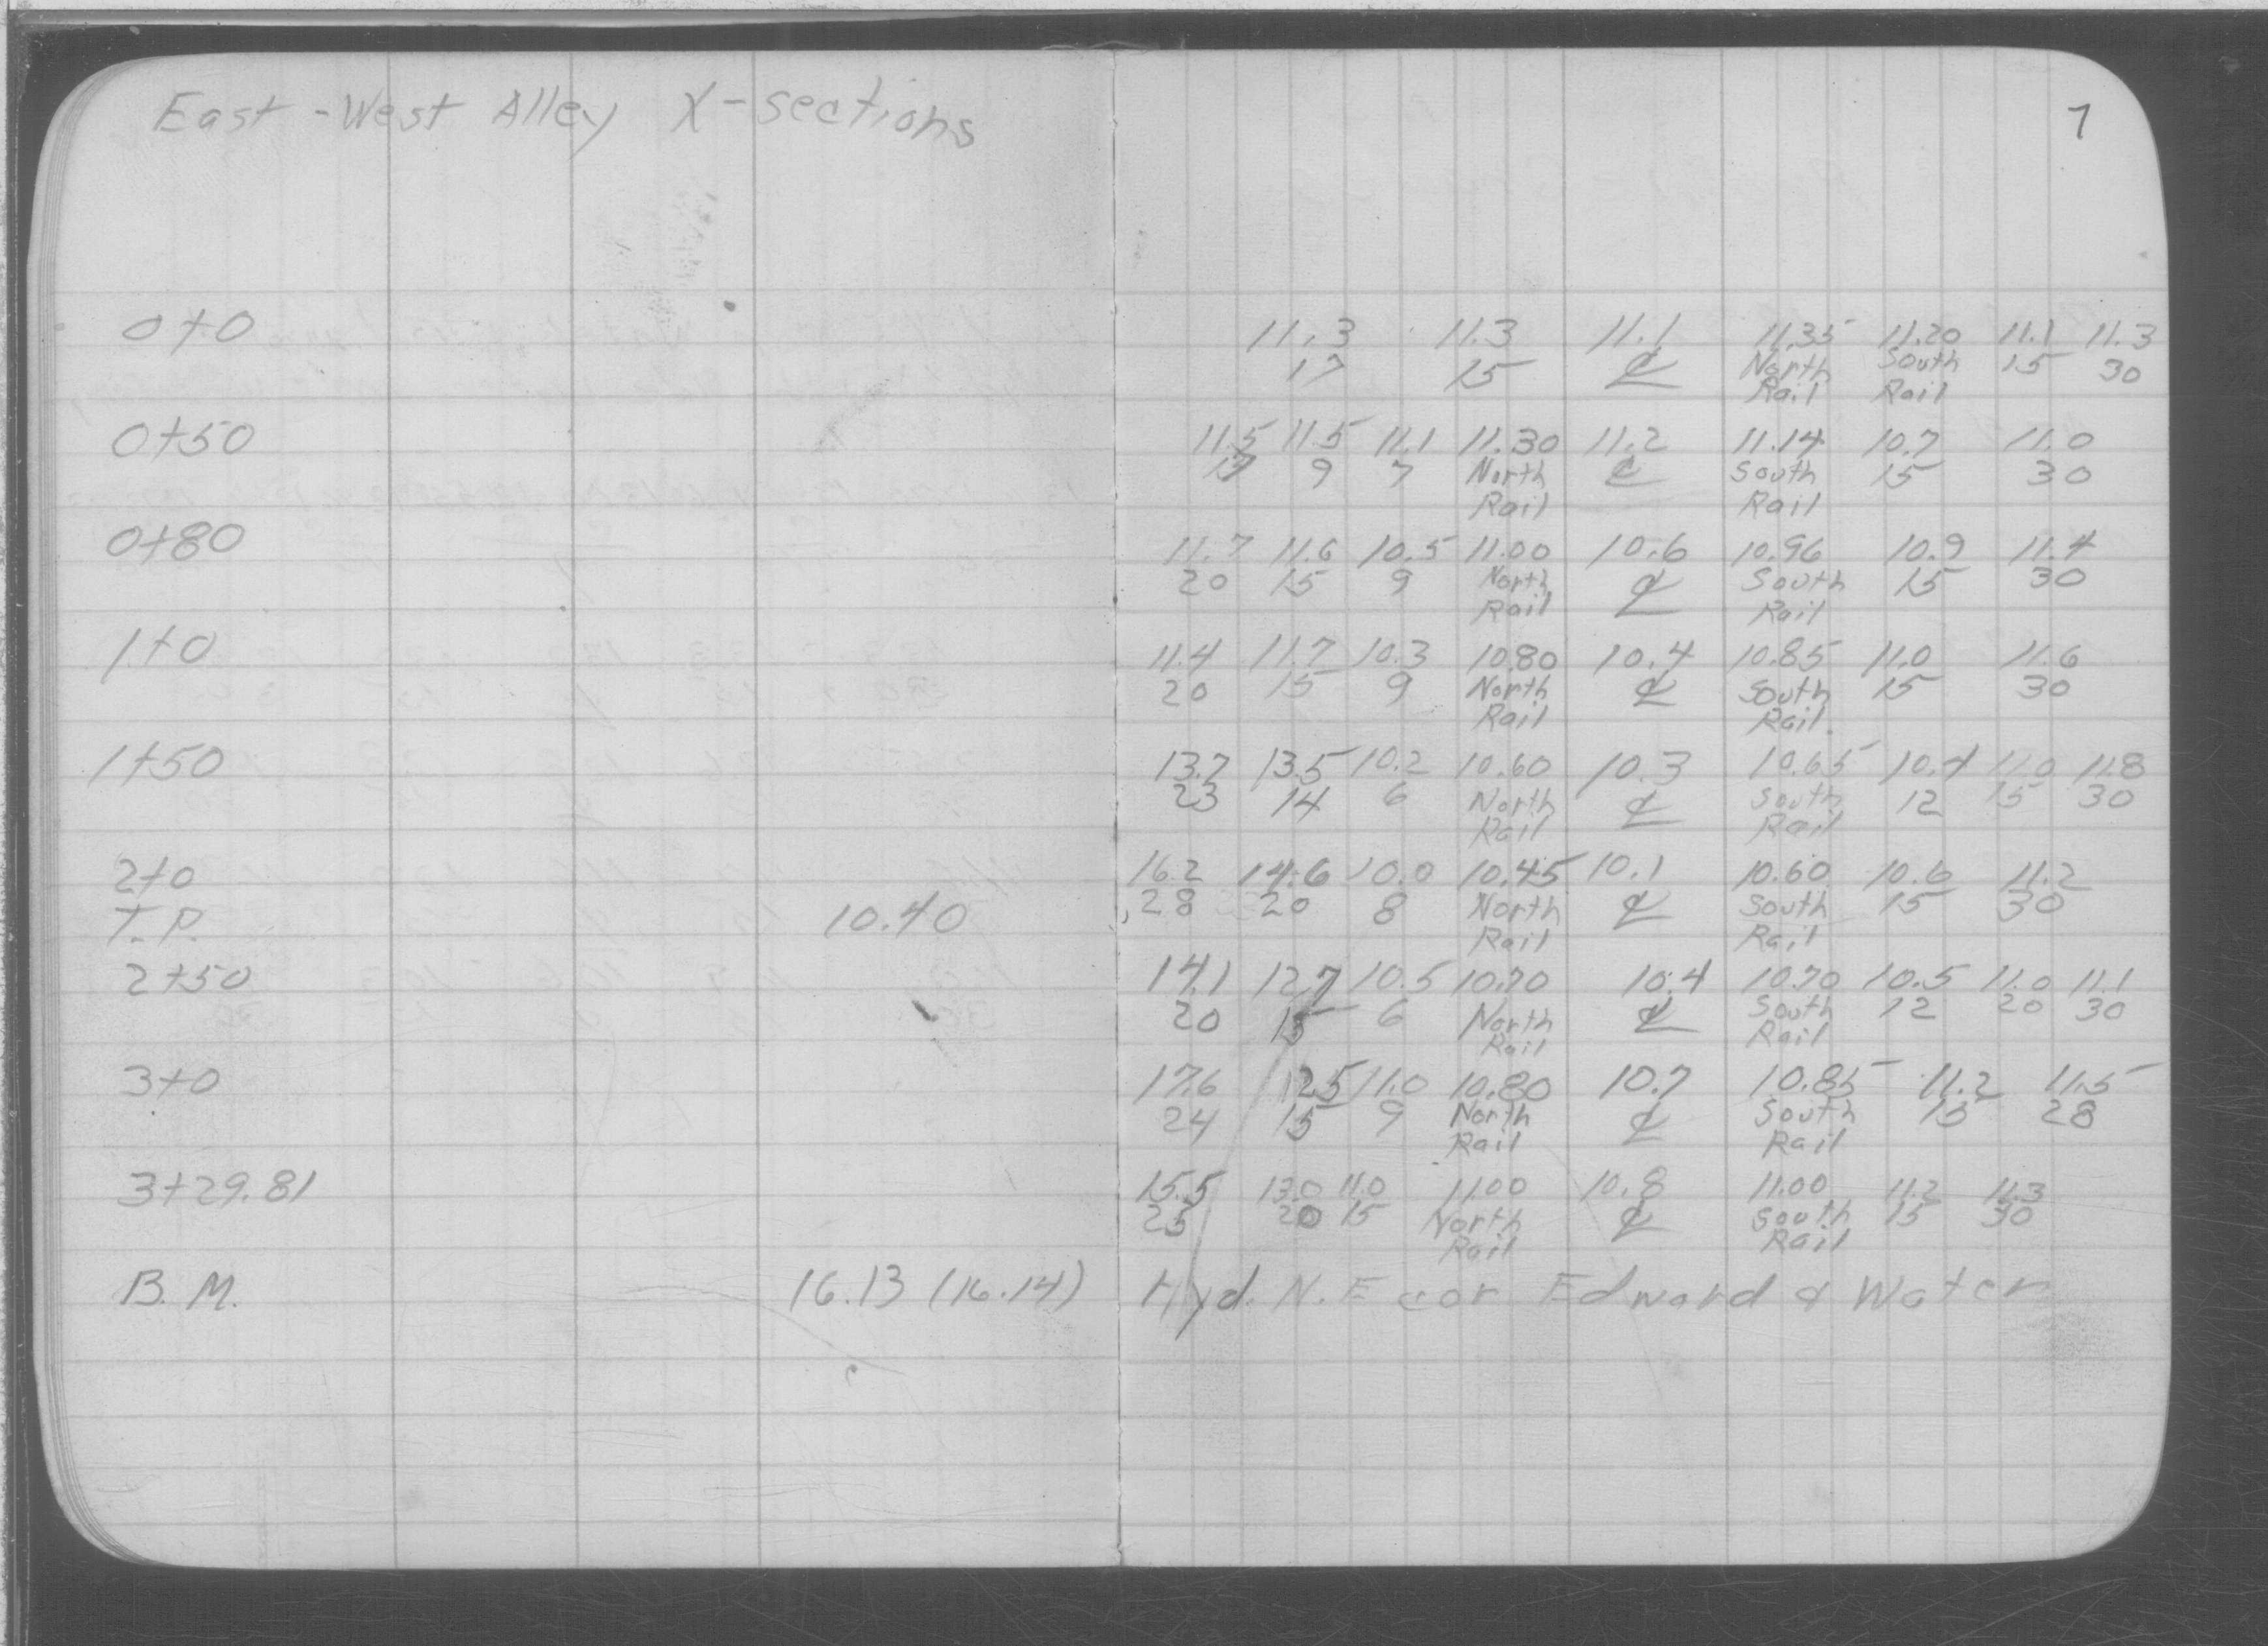 East - West Alley X-sections
7
0+0 11.3 11.3 11.1 11.35 11.20 11.1 11.3
17 15 ℄ North South 15 30
Rail Rail
0+50 11.5 11.5 11.1 11.30 11.2 11.14 10.7 11.0
17 9 7 North ℄ South 15 30
Rail Rail
0+80 11.7 11.6 10.5 11.00 10.6 10.96 10.9 11.4
20 15 9 North ℄ South 15 30
Rail Rail
1+0 11.4 11.7 10.3 10.80 10.4 10.85 11.0 11.6
20 15 9 North ℄ South 15 30
Rail Rail
1+50 13.7 13.5 10.2 10.60 10.3 10.65 10.4 11.0 11.8
23 14 6 North ℄ South 12 15 30
Rail Rail
2+0 16.2 14.6 10.0 10.45 10.1 10.60 10.6 11.2
T.P. 10.40 28 20 8 North ℄ South 15 30
Rail Rail
2+50 14.1 12.7 10.5 10.70 10.4 10.70 10.5 11.0 11.1
20 15 6 North ℄ South 12 20 30
Rail Rail
3+0 17.6 12.5 11.0 10.80 10.7 10.85 11.2 11.5
24 15 9 North ℄ South 15 28
Rail Rail
3+29.81 15.5 13.0 11.0 11.00 10.8 11.00 11.2 11.3
25 20 15 North ℄ South 15 30
Rail Rail
B.M. 16.13 (16.14) Hyd. N.E cor Edward & Water